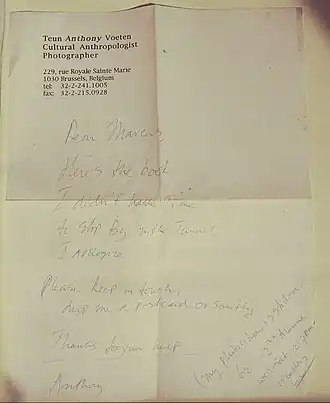 Teun Anthony Voeten
Cultural Anthropologist
Photographer
229, rue Royale Sainte Marie
1030 Brussels, Belgium
tel: 32-2-241.1005
fax: 32-2-215.0928
Dear Marcus,
Here's the book
I didn't have time
to stop by in the Tunnel
I apologize
Please keep in touch,
drop me a postcard or something
Thanks for your help
Anthony
(my publisher is
62